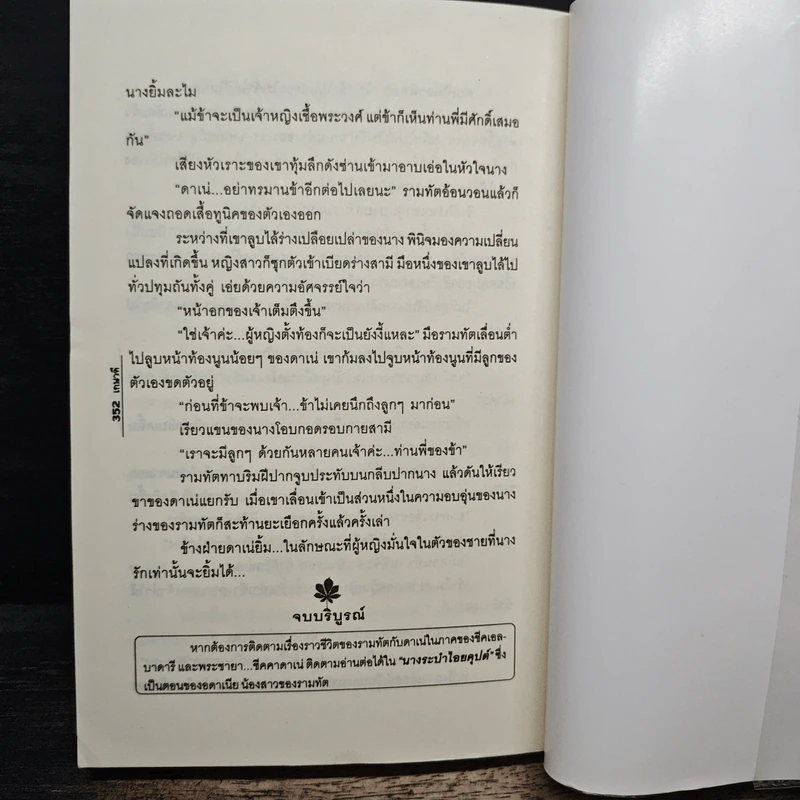 นางยิ้มละไม
“แม้ข้าจะเป็นเจ้าหญิงเชื้อพระวงศ์ แต่ข้าก็เห็นท่านพี่มีศักดิ์เสมอ
กัน”
เสียงหัวเราะของเขาทุ้มลึกดังซ่านเข้ามาอาบเอ่อในหัวใจนาง
“ดาเน่...อย่าทรมานข้าอีกต่อไปเลยนะ” รามทัตอ้อนวอนแล้วก็
จัดแจงถอดเสื้อทูนิคของตัวเองออก
ระหว่างที่เขาลูบไล้ร่างเปลือยเปล่าของนาง พินิจมองความเปลี่ยน
แปลงที่เกิดขึ้น หญิงสาวก็ซุกตัวเข้าเบียดร่างสามี มือหนึ่งของเขาลูบไล้ไป
ทั่วปทุมถันทั้งคู่ เอ่ยด้วยความอัศจรรย์ใจว่า
“หน้าอกของเจ้าเต็มตึงขึ้น”
“ใช่เจ้าค่ะ...ผู้หญิงตั้งท้องก็จะเป็นยังงี้แหละ” มือรามทัตเลื่อนต่ำ
ไปลูบหน้าท้องนูนน้อยๆ ของดาเน่ เขาก้มลงไปจูบหน้าท้องนูนที่มีลูกของ
ตัวเองขดตัวอยู่
“ก่อนที่ข้าจะพบเจ้า...ข้าไม่เคยนึกถึงลูกๆ มาก่อน”
เรียวแขนของนางโอบกอดรอบกายสามี
“เราจะมีลูกๆ ด้วยกันหลายคนเจ้าค่ะ...ท่านพี่ของข้า”
รามทัตทาบริมฝีปากจูบประทับบนกลีบปากนาง แล้วดันให้เรียว
ขาของดาเน่แยกรับ เมื่อเขาเลื่อนเข้าเป็นส่วนหนึ่งในความอบอุ่นของนาง
ร่างของรามทัตก็สะท้านยะเยือกครั้งแล้วครั้งเล่า
ข้างฝ่ายดาเน่ยิ้ม...ในลักษณะที่ผู้หญิงมั่นใจในตัวของชายที่นาง
รักเท่านั้นจะยิ้มได้...
จบบริบูรณ์
หากต้องการติดตามเรื่องราวชีวิตของรามทัตกับดาเน่ในภาคของชีคเอล-
บาดารี และพระชายา...ชีคคาดาเน่ ติดตามอ่านต่อได้ใน “นางระบำไอยคุปต์” ซึ่ง
เป็นตอนของอดาเนีย น้องสาวของรามทัต
352 เกษวดี